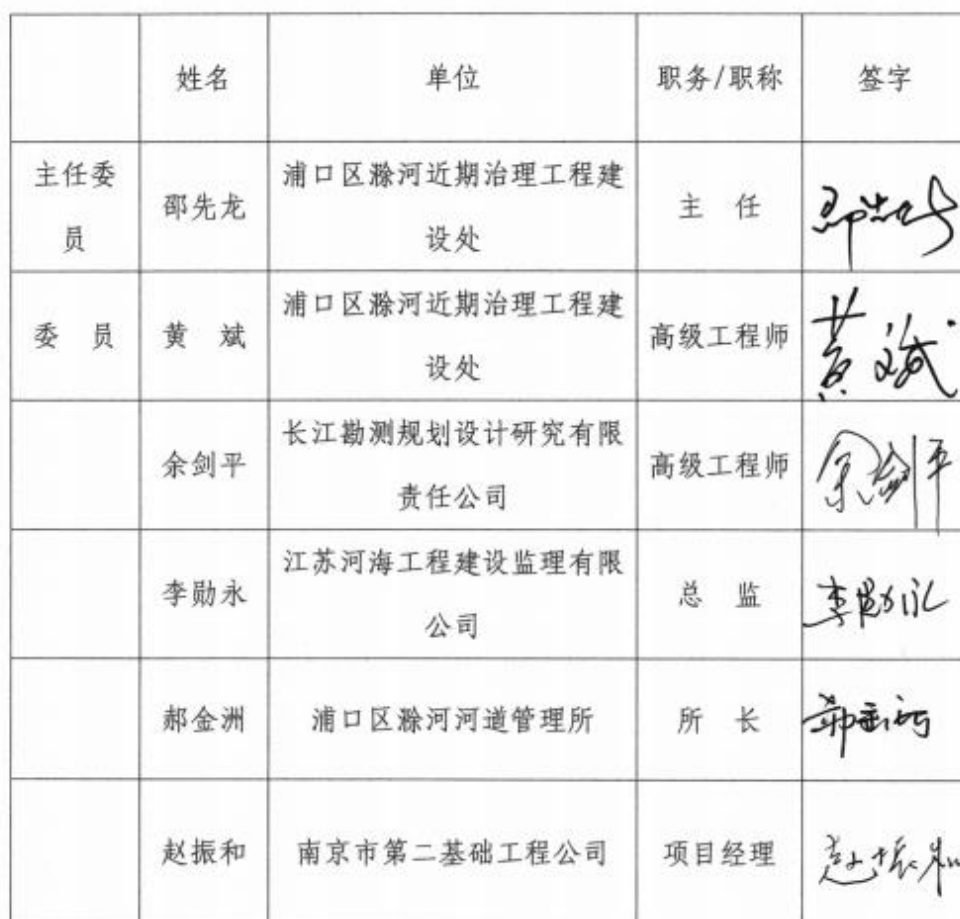 姓名 单位 职务/职称 签字
主任委
员 邵先龙 浦口区滁河近期治理工程建
设处 主 任 邵先龙
委 员 黄 斌 浦口区滁河近期治理工程建
设处 高级工程师 黄斌
余剑平 长江勘测规划设计研究有限
责任公司 高级工程师 余剑平
李勋永 江苏河海工程建设监理有限
公司 总 监 李勋永
郝金洲 浦口区滁河河道管理所 所 长
赵振和 南京市第二基础工程公司 项目经理 赵振和